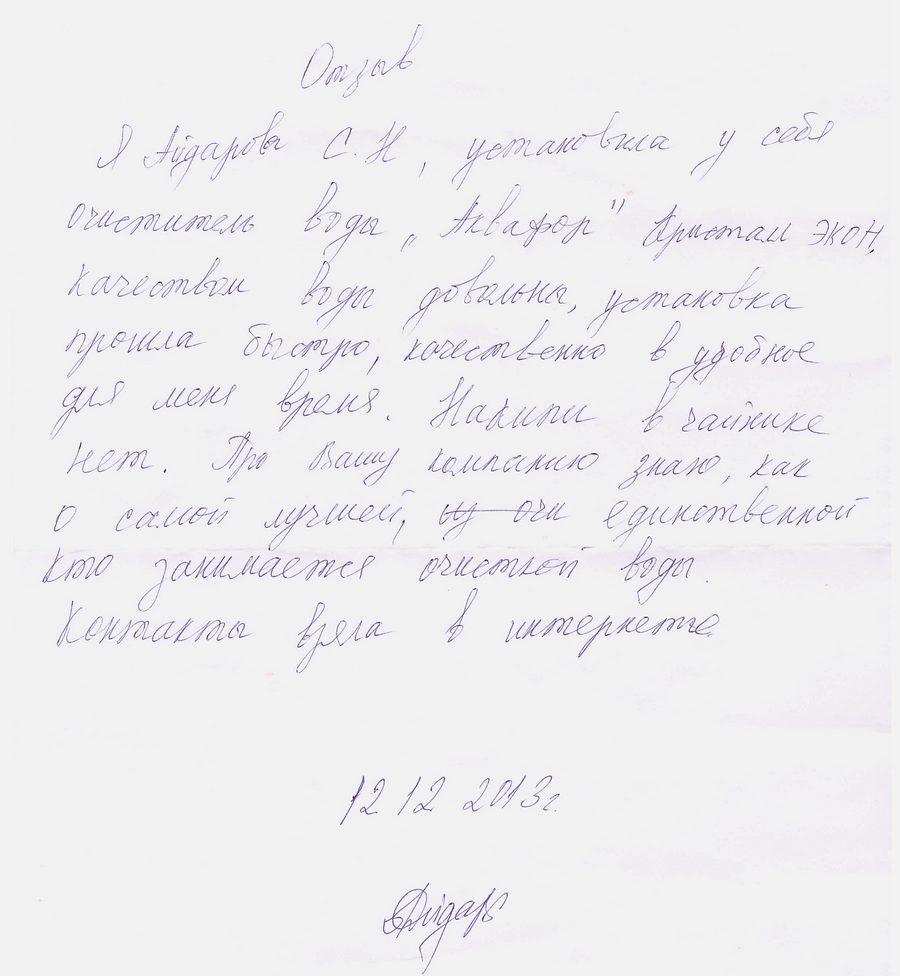 Отзыв
Я Айдарова С.Н, установила у себя
очиститель воды „Аквафор" Кристал ЭКОН,
качеством воды довольна, установка
прошла быстро, качественно в удобное
для меня время. Накипи в чайнике
нет. Про Вашу компанию знаю, как
о самой лучшей, из очи единственной
кто занимается очисткой воды.
Контакты взяла в интернете.
12 12 2013г.